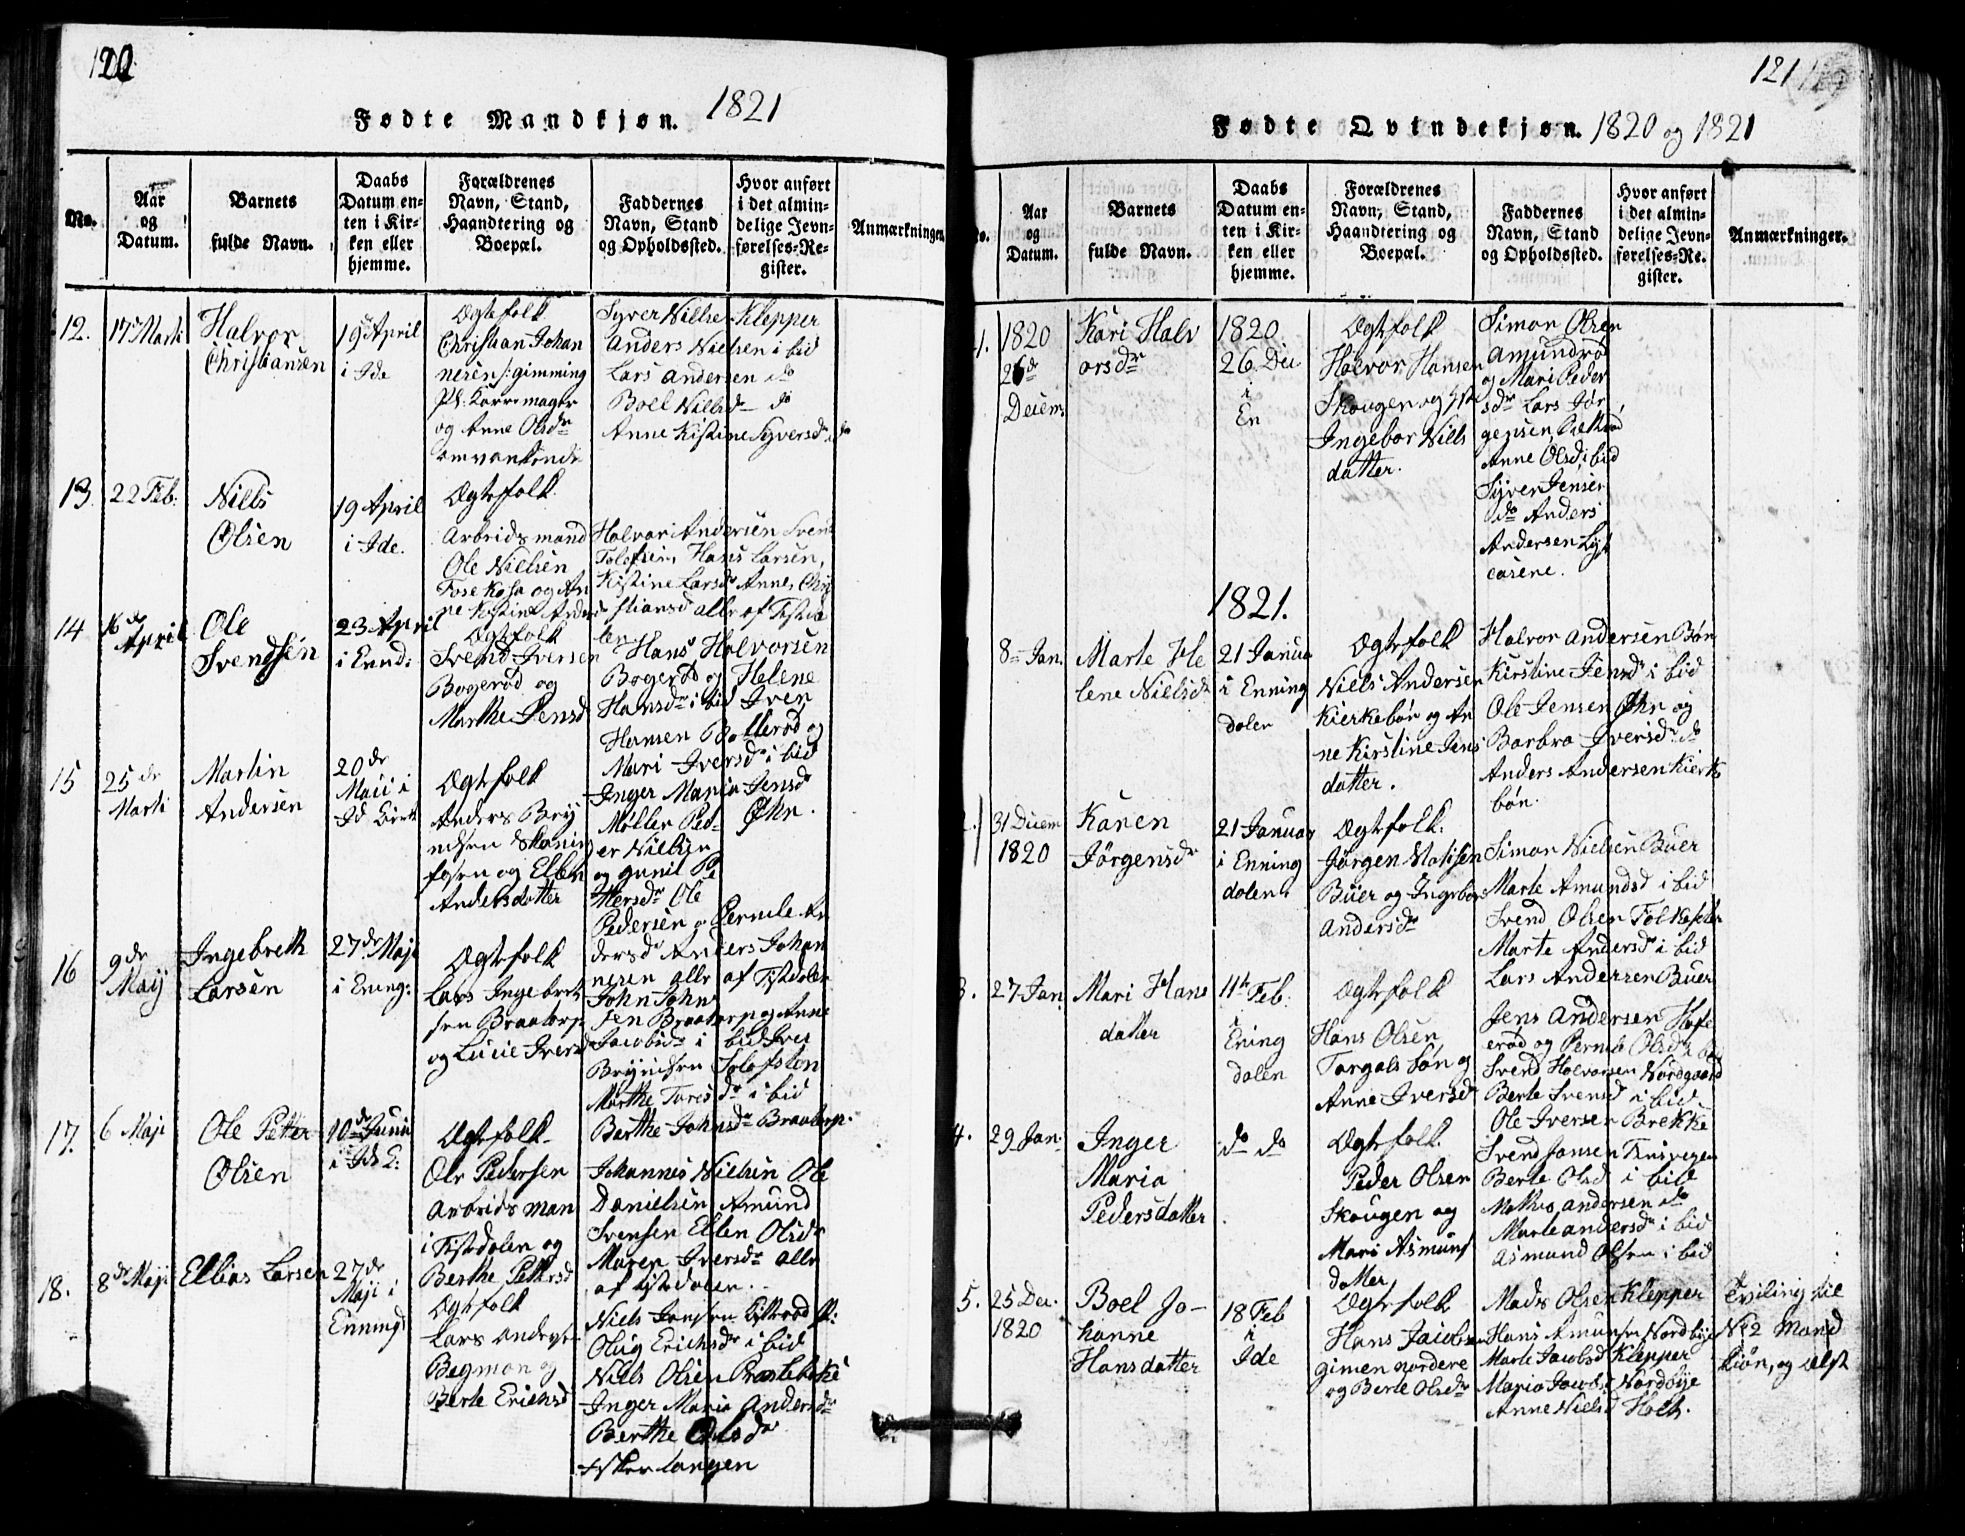 120
Fødte Mandkjøn. 1821
No.
Aar og Datum.
Barnets fulde Navn.
Daabs Datum enten i Kirken eller hjemme.
Forældrenes Navn, Stand, Haandtering og Boepæl.
Faddernes Navn, Stand og Opholdssted.
Hvor anført i det almindelige Jevnførelses-Register.
Anmærkninger.
12.
17 Marti
Halvor
Christiansen
19 April
i Ide
Ægtefolk
Christian Johan
nesen /: gimming
og Anne Olsdr
omvankende
Syver Nielse Klepper
Anders Nielsen i bid
Lars Andersen do
Boel Nielsdr do
Anne Kistine Syversdr do
13.
22 Feb.
Niels
Olsen
19 April
i Ide.
Ægtefolk
Arbeidsmand
Ole Nielsen
og An
ne Kistine Andersd
Halvor Andersen Svend
Tolofsen, Hans Larsen,
Kistine Larsdr Anne Chri
stiansd alle af Tistda
len
14
16de
April
Ole
Svendsen
23 April
i Ennd:
Ægtefolk
Svend Iversen
Bogerød og
Marthe Jensd
Hans Halvorsen
Bogerød og Helene
Hansdr i bid Iver
Hansen Bollerød og
Mari Iversdr i bid
Inger Maria Jensdr
Øhn.
15
25de
Marti
Martin
Andersen
20de
Maii i
Id
Ægtefolk
Anders Bry
ndsen Skonin
fosen og Ellen
Andersdatter
Møller Ped-
er Nielsen
og Gunil Pe
ttersdr Ole
Pedersen og Pernele An
dersdr Anders Johan
nesen alle af Tistdalen
16
9de
Maij
Ingebreth
Larsen
27de Maji
i Ening:
Ægtefolk
Lars Ingebret
sen Braatorp
og Lucie Iversd
John John
sen Braatorp og Anne
Jacobsdr i bid Iver
Bryndsen Tolofsløn
Marthe Toresdr i bid
Berthe Johnsdr Braatorp.
17.
6 Maji
Ole Petter
Olsen
10de Junii
i Ids
Ægtefolk
Ole Pedersen
Arbeidsman
i Tistedalen og
Berthe Pettersd
Johannes Nielsen Ole
Danielsen Amund
Svensen Ellen Olsdr
Maren Iversdr alle
af Tistedalen.
18.
8de Maji
Ellias Larsen
27de
Maji i
Enning
Ægtefolk
Lars Anders-
Begman og
Berte Erichsd
Niels Jansen
Olug Erichsdr i bid
Niels Olsen Prestebakke
Inger Maria Andersdr
Berthe Olsdr
121
Fødte Qvindekjøn. 1820 og 1821
No.
Aar og Datum.
Barnets fulde Navn.
Daabs Datum enten i Kirken eller hjemme.
Forældrenes Navn, Stand, Haandtering og Boepæl.
Faddernes Navn, Stand og Opholdssted.
Hvor anført i det almindelige Jevnførelses-Register.
Anmærkninger.
1820
26de
Decem
Kari Halv
orsdr
1820
26 Dec
i
En
Ægtefolk
Halvor Hansen
Skougen og
Ingebor Niels
datter.
Simon Olsen
Amundrød
og Mari Peder
sdr Lars Jør
gensen
Anne Olsd i bid
Syver Jensen
do Anders
Andersen
1821.
8 Jan.
Marte He
lene Nielsdr
21 Janua
i Enning
dalen
Ægtefolk
Niels Andersen
Kierkebøn og An
ne Kirstine Jens
datter.
Halvor Andersen Bøn
Kirstine Jensd i bid
Ole Jensen Øhn og
Barbra Iversdr do
Anders Andersen Kierke
bøn.
31 Decem
1820
Karen
Jørgensdr
21 Januar
i Enning
dalen
Ægtefolk.
Jørgen
Buer og Ingebor
Andersdr
Simon Nielsen Buer
Marte Amundsd i bid
Svend Olsen
Marte Andersd i bid
Lars Andersen Buer
3.
27 Jan
Mari Hans
datter
11te Feb.
i
Ening
dalen
Ægtefolk
Hans Olsen
Torgals Løn og
Anne Iversdr
Jens Andersen
og Pernele Olsdr
Svend Halvorsen Nordgaard
Berte Svensd i bid
Ole Iversen Brekke
4.
29 Jan.
Inger
Maria
Pedersdatter
do do
Ægtefolk
Peder Olsen
Skougen og
Mari Asmunds
datter
Svend Jansen
Berte Olsd i bid
Mathis Andersen do
Marte Andersdr i bid
Asmund Olsen i bid
5.
25 Dec.
1820
Boel Jo-
hanne
Hansdatter
18 Feb
i
Ide
Ægtefolk
Hans Jacobsen
gimen nordere
og Berte Olsdr
Mads Olsen Klepper
Hans Amunsen Nordbye
Marte Jacobsd Klepper
Maria Jacobsd Nordbye
Anne Nielsd Holt.
Tviling til
No 2 Mand
kiøn, og ælst